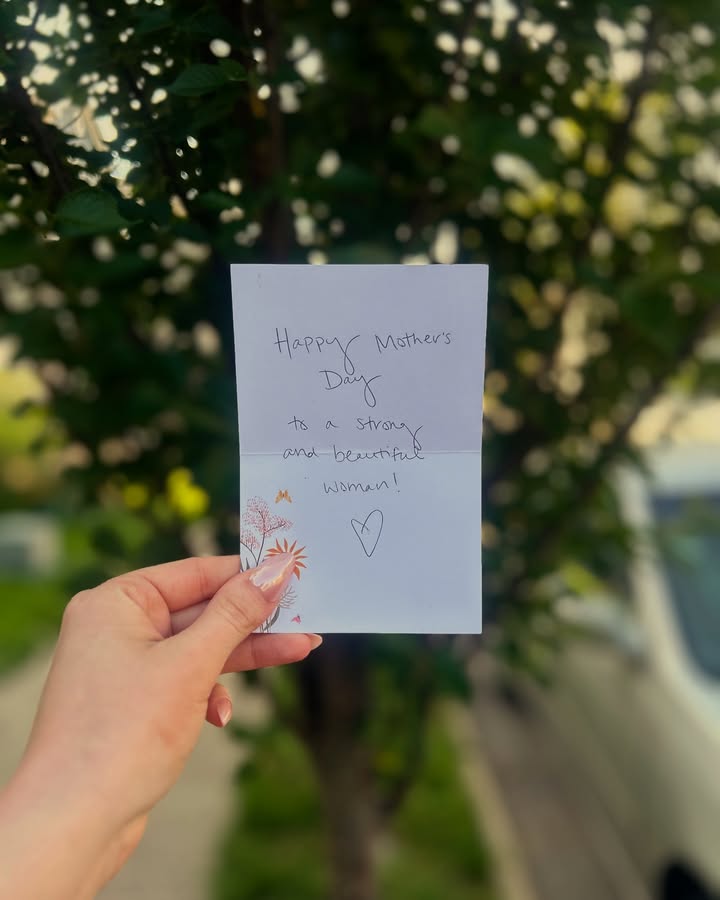 Happy Mother's
Day
to a strong
and beautiful
woman!